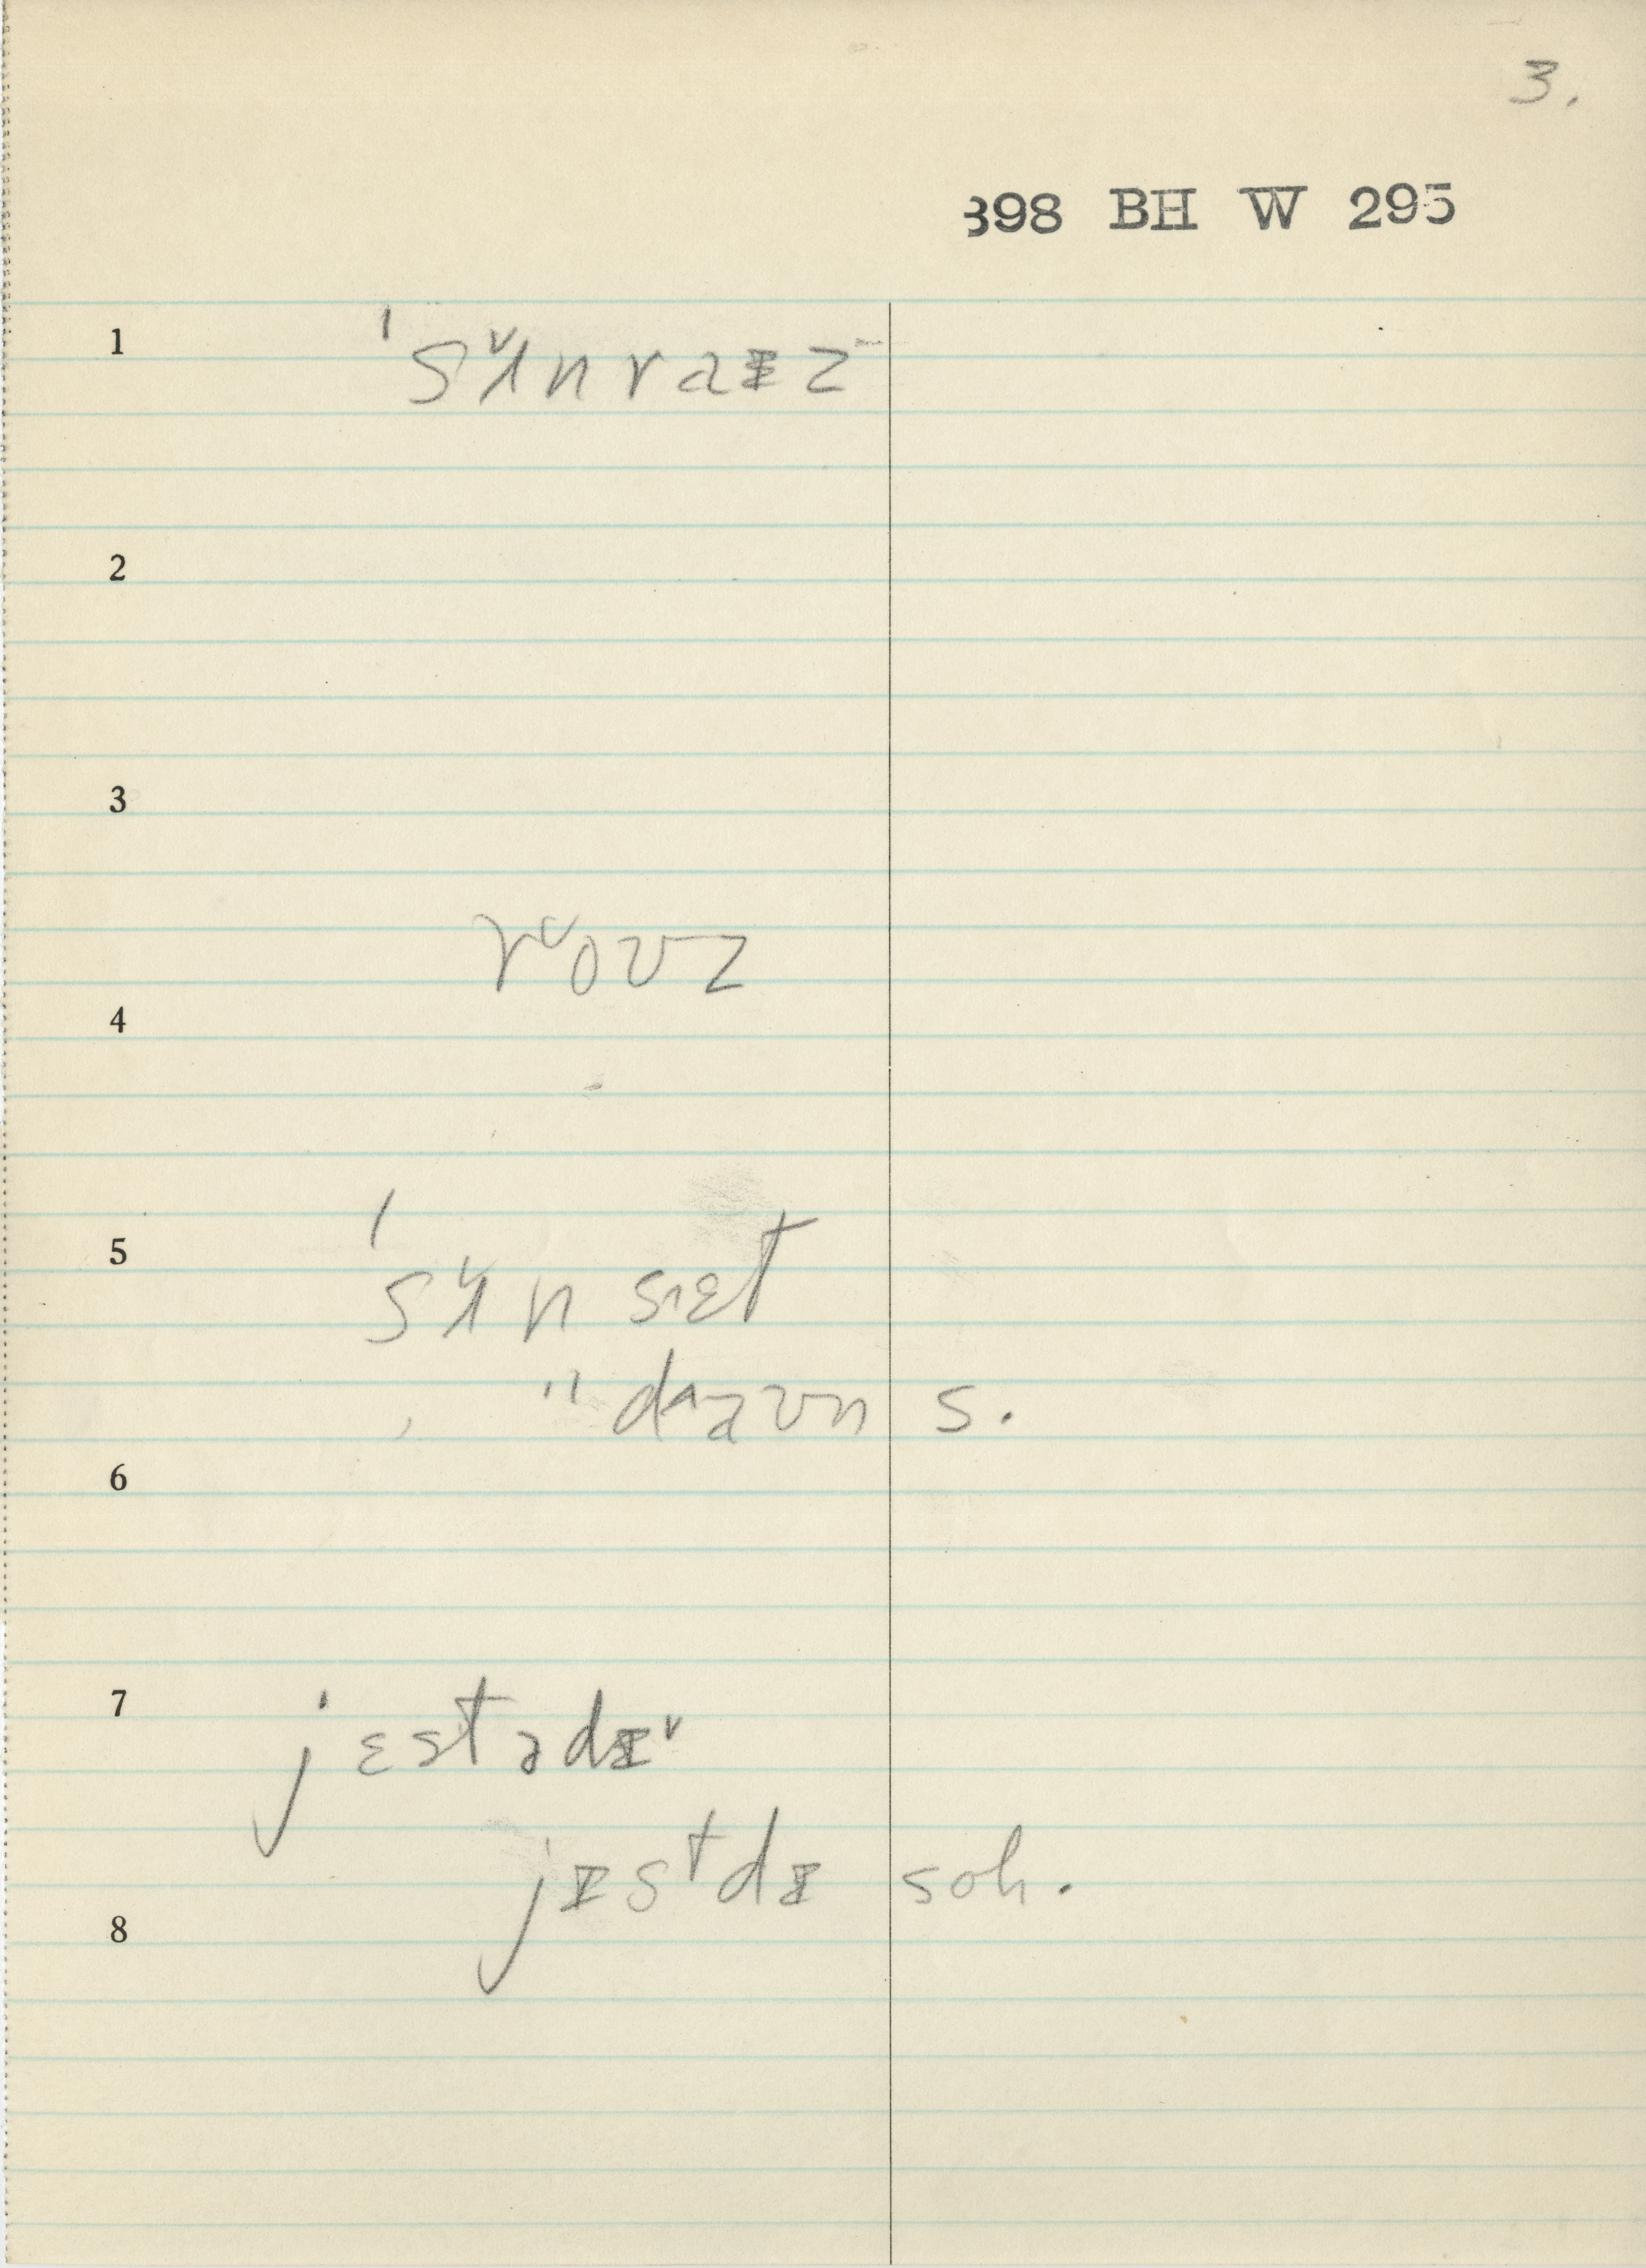 3.
398 BH W 295
1 ˈsʌ˅nraɪz
2
3
r˅oʊz
4
5 ˈsʌ˅n s˄ɛt
" d˄aʊn s.
6
7 jɛstədɪ˅
jɪstdɪ soh.
8